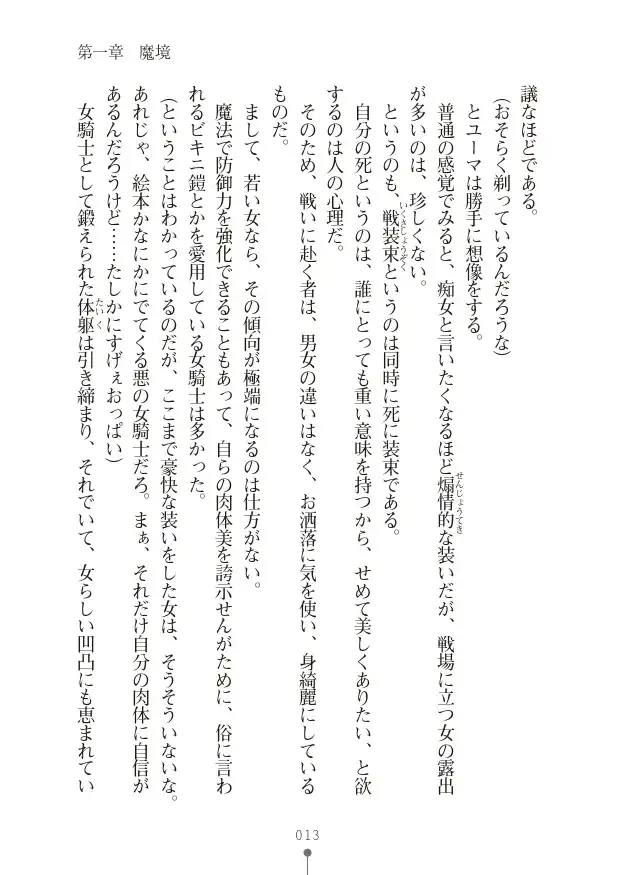 第一章　魔境
議なほどである。
(おそらく剃っているんだろうな)
とユーマは勝手に想像をする。
普通の感覚でみると、痴女と言いたくなるほど煽情的な装いだが、戦場に立つ女の露出
せんじょうてき
が多いのは、珍しくない。
というのも、戦装束というのは同時に死に装束である。
いくさしょうぞく
自分の死というのは、誰にとっても重い意味を持つから、せめて美しくありたい、と欲
するのは人の心理だ。
そのため、戦いに赴く者は、男女の違いはなく、お洒落に気を使い、身綺麗にしている
ものだ。
まして、若い女なら、その傾向が極端になるのは仕方がない。
魔法で防御力を強化できることもあって、自らの肉体美を誇示せんがために、俗に言わ
れるビキニ鎧とかを愛用している女騎士は多かった。
(ということはわかっているのだが、ここまで豪快な装いをした女は、そうそういないな。
あれじゃ、絵本かなにかにでてくる悪の女騎士だろ。まぁ、それだけ自分の肉体に自信が
あるんだろうけど……たしかにすげぇおっぱい)
女騎士として鍛えられた体躯は引き締まり、それでいて、女らしい凹凸にも恵まれてい
たいく
013